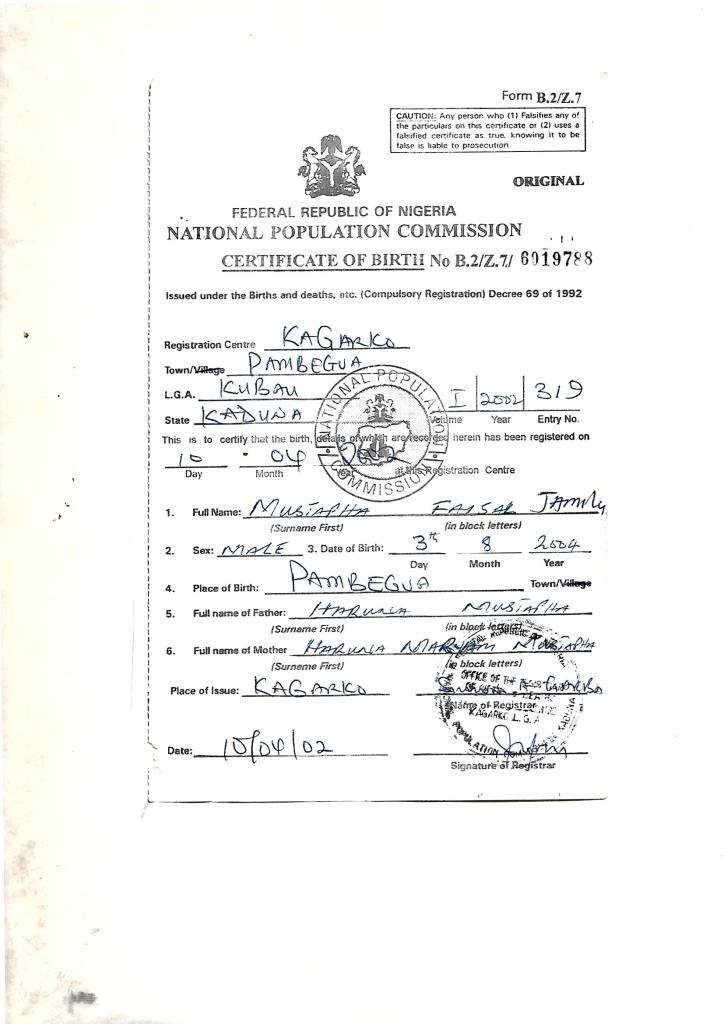 Form B.2/Z.7
CAUTION: Any person who (1) Falsifies any of
the particulars on this certificate or (2) uses a
falsified certificate as true, knowing it to be
false is liable to prosecution
ORIGINAL
FEDERAL REPUBLIC OF NIGERIA
NATIONAL POPULATION COMMISSION
CERTIFICATE OF BIRTH No B.2/Z.7/ 6019788
Issued under the Births and deaths, etc. (Compulsory Registration) Decree 69 of 1992
Registration Centre KAGARKO
Town/Village PAMBEGUA
L.G.A. KUBAU I 2002 319
Volume Year Entry No.
State KADUNA
NATIONAL POPULATION COMMISSION
This is to certify that the birth, details of which are recorded herein has been registered on
10 04 2002 at this Registration Centre
Day Month Year
1. Full Name: MUSTAPHA FAISAL JAMILU
(Surname First) (in block letters)
2. Sex: MALE 3. Date of Birth: 3th 8 2004
Day Month Year
4. Place of Birth: PAMBEGUA Town/Village
5. Full name of Father: HARUNA MUSTAPHA
(Surname First) (in block letters)
6. Full name of Mother HARUNA MARYAM MUSTAPHA
(Surname First) (in block letters)
Place of Issue: KAGARKO GARBA
Name of Registrar
OFFICE OF THE
KAGARKO L.G.A
Date: 10/04/02
Signature of Registrar